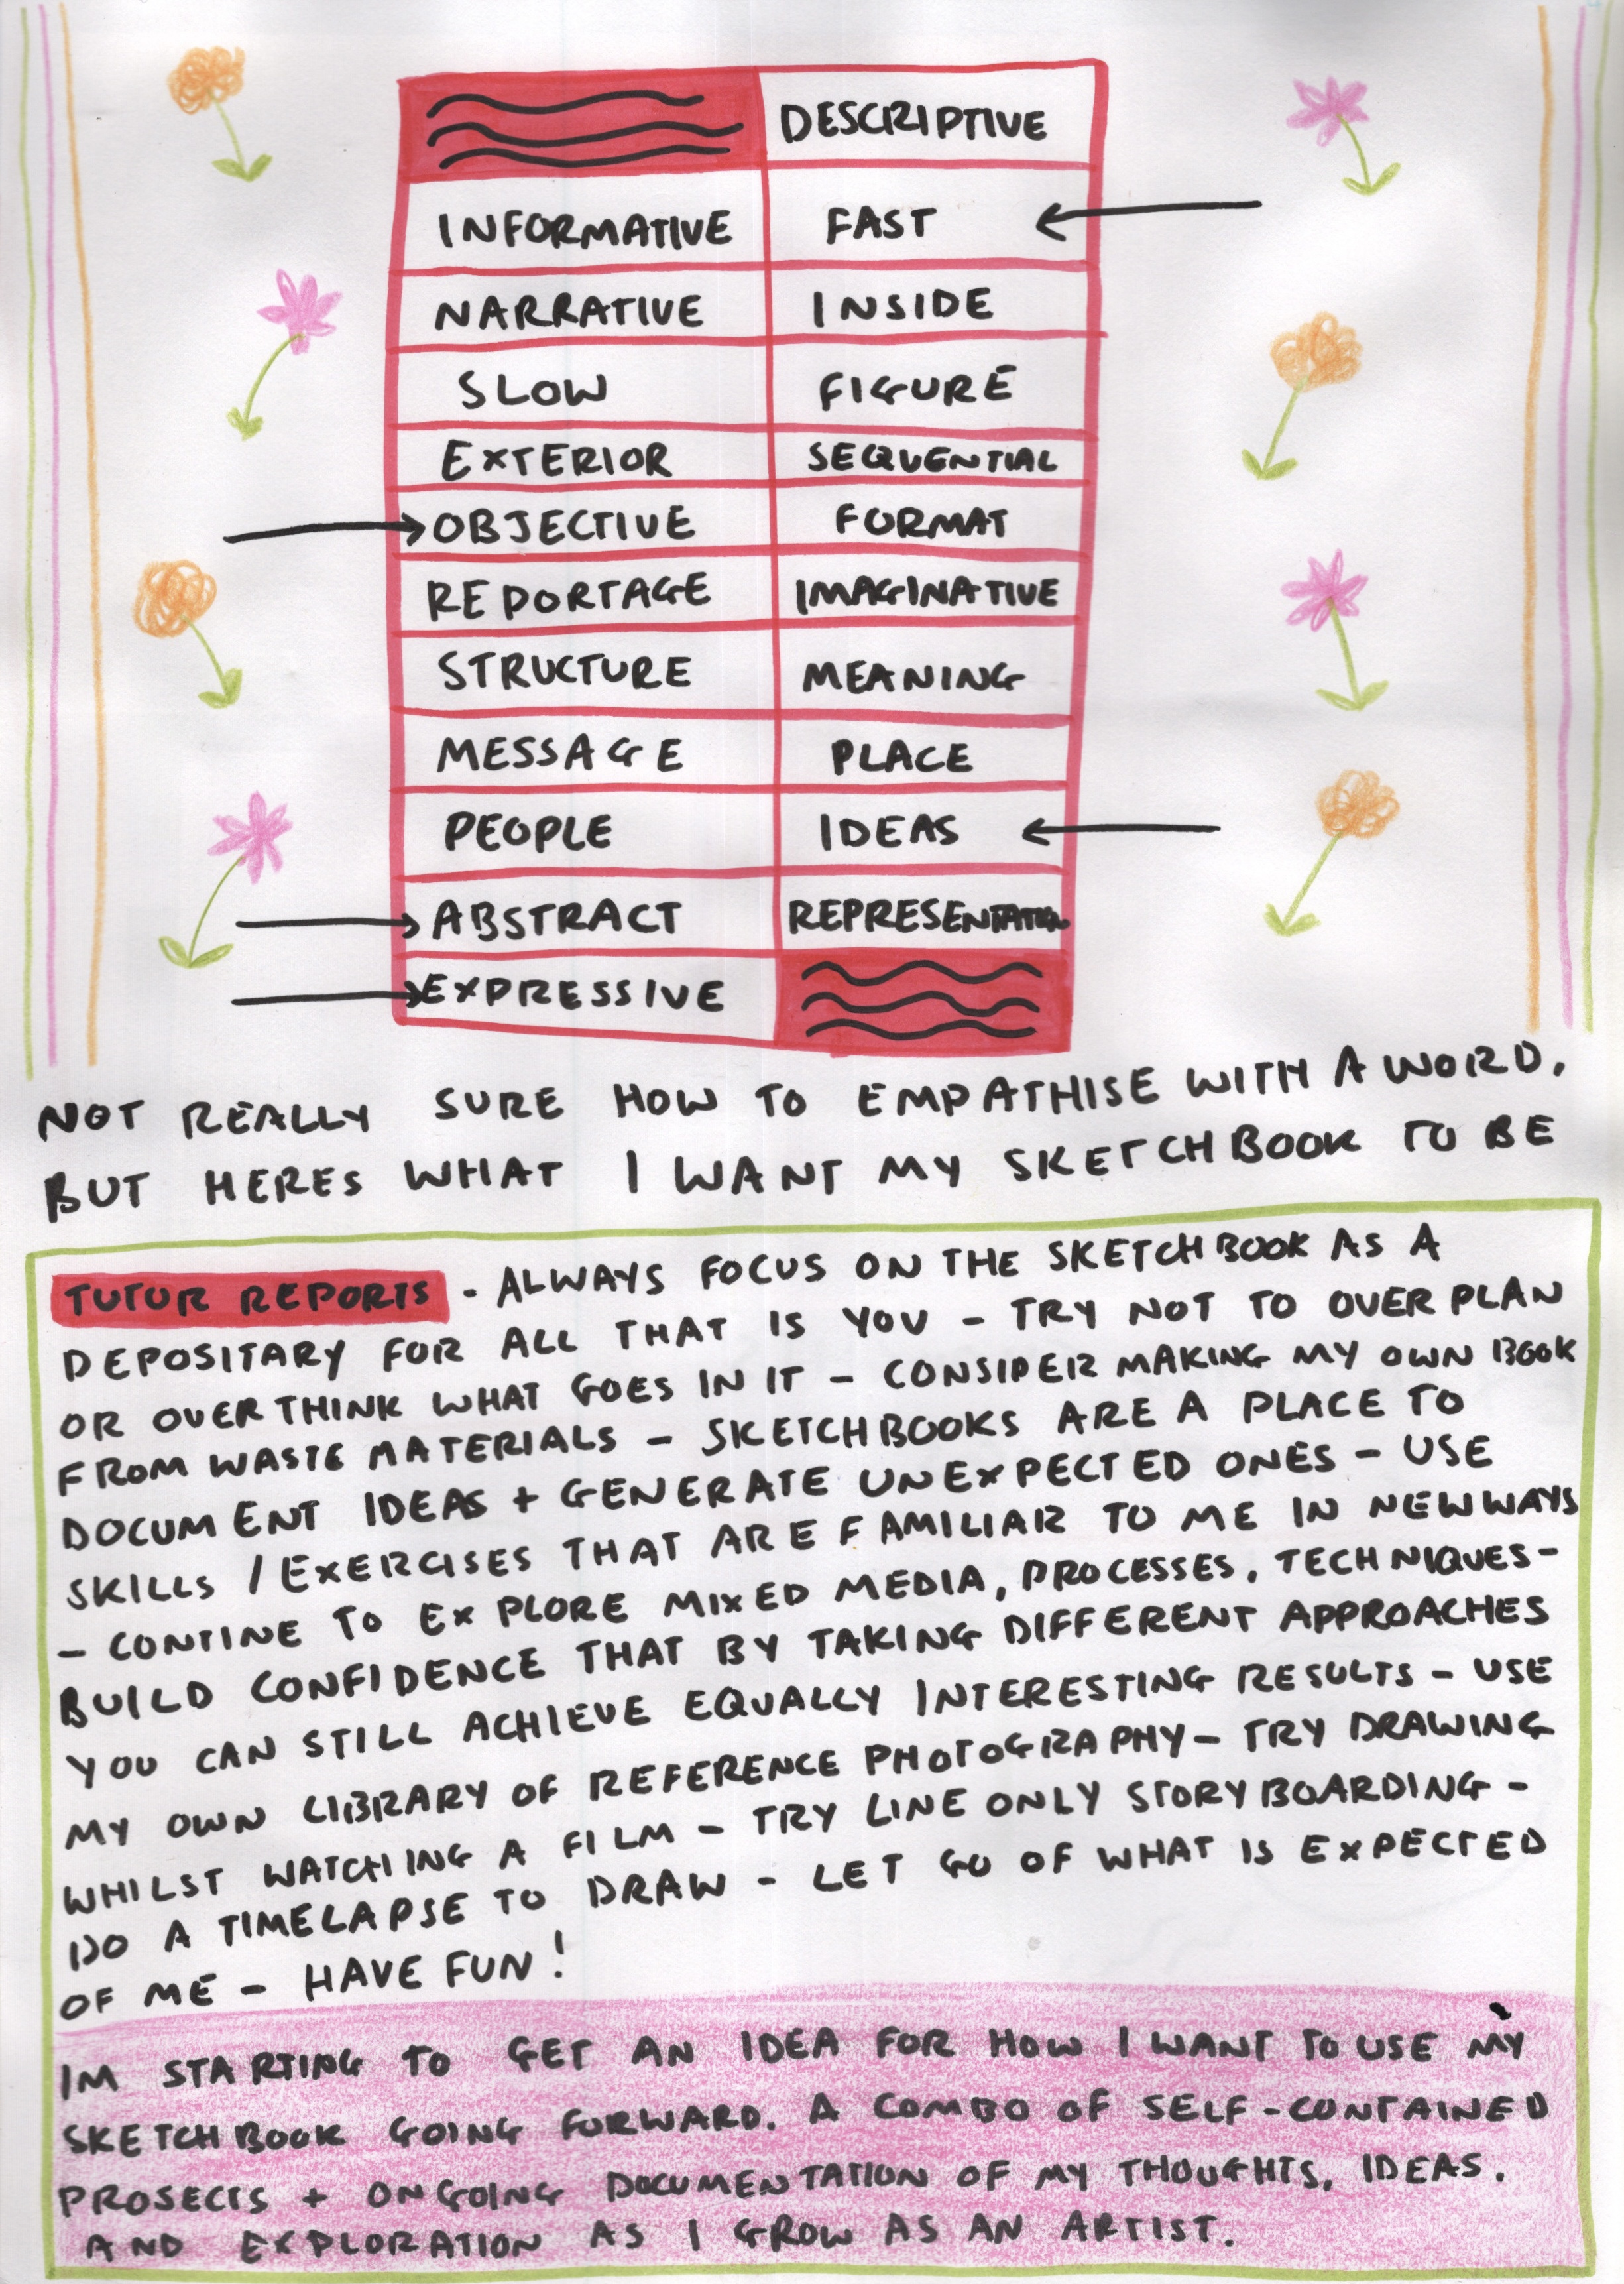 DESCRIPTIVE
INFORMATIVE FAST
NARRATIVE INSIDE
SLOW FIGURE
EXTERIOR SEQUENTIAL
OBJECTIVE FORMAT
REPORTAGE IMAGINATIVE
STRUCTURE MEANING
MESSAGE PLACE
PEOPLE IDEAS
ABSTRACT REPRESENTATION
EXPRESSIVE
NOT REALLY SURE HOW TO EMPATHISE WITH A WORD,
BUT HERES WHAT I WANT MY SKETCHBOOK TO BE
TUTUR REPORTS - ALWAYS FOCUS ON THE SKETCHBOOK AS A
DEPOSITARY FOR ALL THAT IS YOU - TRY NOT TO OVER PLAN
OR OVERTHINK WHAT GOES IN IT - CONSIDER MAKING MY OWN BOOK
FROM WASTE MATERIALS - SKETCHBOOKS ARE A PLACE TO
DOCUMENT IDEAS + GENERATE UNEXPECTED ONES - USE
SKILLS / EXERCISES THAT ARE FAMILIAR TO ME IN NEW WAYS
- CONTINE TO EXPLORE MIXED MEDIA, PROCESSES, TECHNIQUES -
BUILD CONFIDENCE THAT BY TAKING DIFFERENT APPROACHES
YOU CAN STILL ACHIEVE EQUALLY INTERESTING RESULTS - USE
MY OWN LIBRARY OF REFERENCE PHOTOGRAPHY - TRY DRAWING
WHILST WATCHING A FILM - TRY LINE ONLY STORYBOARDING -
DO A TIMELAPSE TO DRAW - LET GO OF WHAT IS EXPECTED
OF ME - HAVE FUN!
IM STARTING TO GET AN IDEA FOR HOW I WANT TO USE MY
SKETCHBOOK GOING FORWARD. A COMBO OF SELF-CONTAINED
PROJECTS + ONGOING DOCUMENTATION OF MY THOUGHTS, IDEAS,
AND EXPLORATION AS I GROW AS AN ARTIST.